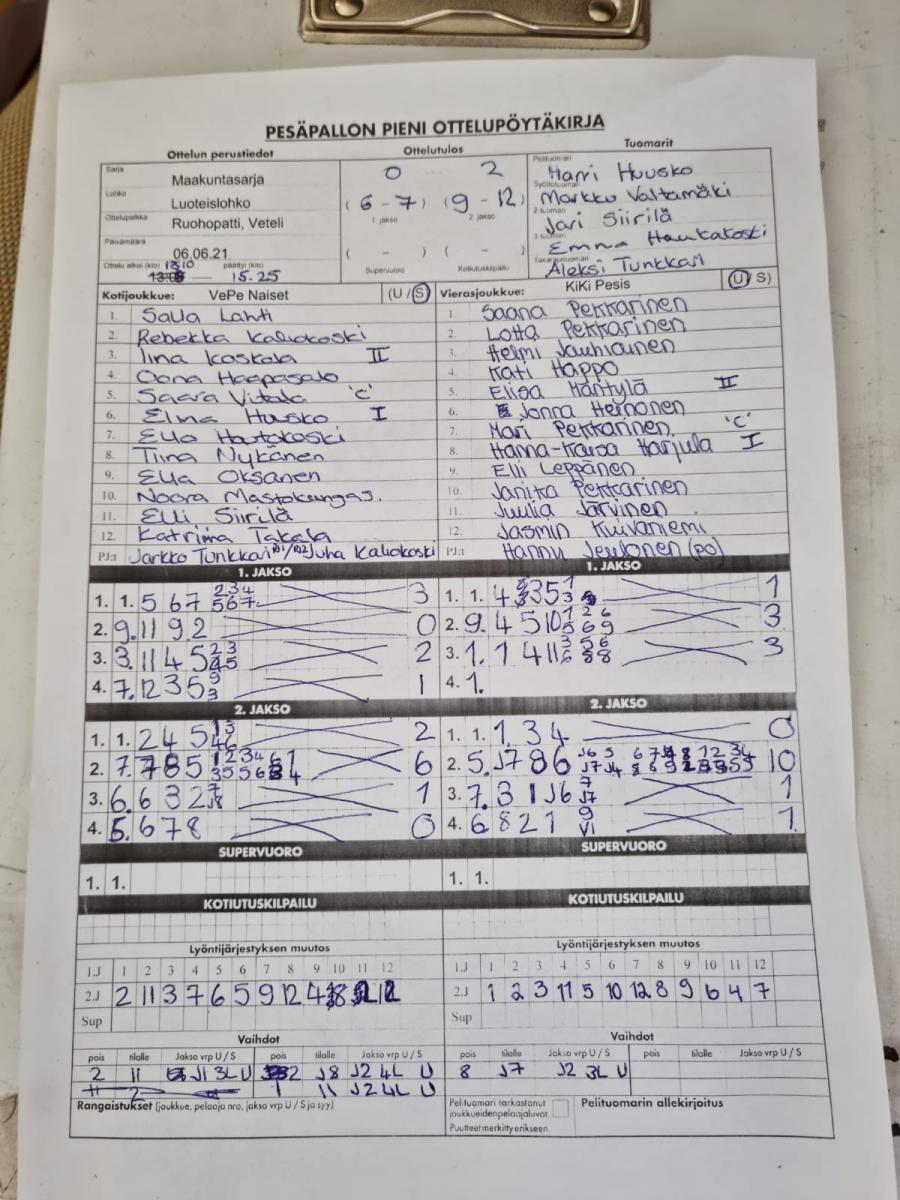 PESÄPALLON PIENI OTTELUPÖYTÄKIRJA
Ottelun perustiedot
Ottelutulos
Tuomarit
Sarja
Maakuntasarja
Lohko
Luoteislohko
Ottelupaikka
Ruohopatti, Veteli
Päivämäärä
06.06.21
Ottelu alkoi (klo) 13.10 päättyi (klo)
15.25
0 2
(6-7) (9-12)
1. jakso 2. jakso
( - ) ( - )
Supervuoro Kotiutuskilpailu
Pelituomari
Harri Huusko
Syöttötuomari
Markku Valtamäki
2-tuomari
Jari Siirilä
3-tuomari
Emma Haukakoski
Takarajatuomari
Aleksi Tunkkari
Kotijoukkue: VePe Naiset (U / S)
1. Salla Lahti
2. Rebekka Kaliokoski
3. Iina Koskela II
4. Oona Haapasalo
5. Saara Vitala 'C'
6. Elma Huusko I
7. Ella Hautakoski
8. Tiina Nykänen
9. Ella Oksanen
10. Noora Mastokangas.
11. Elli Siirilä
12. Katriina Takala
PJ:t Jarkko Tunkkari Juha Kaliokoski
Vierasjoukkue: KiKi Pesis (U / S)
1. Saana Pekkarinen
2. Lotta Pekkarinen
3. Helmi Jauhiainen
4. Kati Happo
5. Elisa Mäntylä II
6. Jonna Heinonen
7. Mari Pekkarinen 'C'
8. Hanna-Kaisa Harjula I
9. Elli Leppänen
10. Janika Pekkarinen
11. Juulia Järvinen
12. Jasmin Kuivaniemi
PJ:t Hannu Jeulonen (PO)
1. JAKSO
1. 1. 5 6 7 2 3 4 3
5 6 7
2. 9. 11 9 2 0
3. 3. 11 4 5 2 3 2
4 5
4. 7. 12 3 5 9 1
3
1. JAKSO
1. 1. 4 3 5 1 1
3
2. 9. 4 5 10 1 2 6 3
5 6 9
3. 1. 1 4 11 3 5 6 3
6 8 8
4. 1.
2. JAKSO
1. 1. 2 4 5 1 3 2
4 6
2. 7. 7 8 5 1 2 3 4 6 1 6
3 5 5 6 4
3. 6. 6 3 2 7 1
J8
4. 5. 6 7 8 0
2. JAKSO
1. 1. 1 3 4 0
2. 5. J7 8 6 10
3. 7. 3 1 J6 7 1
J7
4. 6. 8 2 1 9 1
VI
SUPERVUORO
1. 1.
SUPERVUORO
1. 1.
KOTIUTUSKILPAILU
KOTIUTUSKILPAILU
Lyöntijärjestyksen muutos
1.J 1 2 3 4 5 6 7 8 9 10 11 12
2.J 2 11 3 7 6 5 9 12 4 8
Sup
Lyöntijärjestyksen muutos
1.J 1 2 3 4 5 6 7 8 9 10 11 12
2.J 1 2 3 11 5 10 12 8 9 6 4 7
Sup
Vaihdot
pois tilalle Jakso vrp U / S pois tilalle Jakso vrp U / S
2 11 J1 3L U 2 J8 J2 4L U
11 2 1 11 J2 4L U
Vaihdot
pois tilalle Jakso vrp U / S pois tilalle Jakso vrp U / S
8 J7 J2 3L U
Rangaistukset (joukkue, pelaaja nro, jakso vrp U / S ja syy)
Pelituomari tarkastanut
joukkueiden pelaajaluvat.
Puutteet merkitty erikseen.
Pelituomarin allekirjoitus